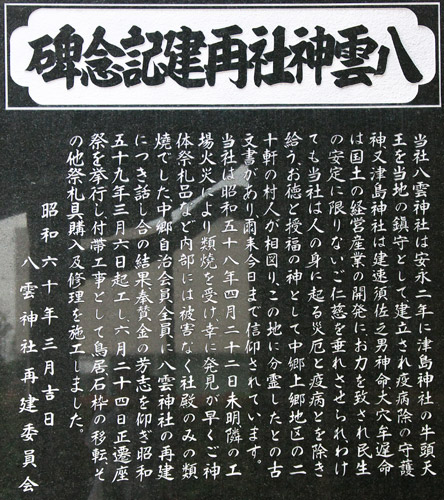 八雲神社再建記念碑
当社八雲神社は安永二年に津島神社の牛頭天
王を当地の鎮守として建立され疫病除の守護
神又津島神社は建速須佐之男神命大穴牟遅命
は国土の経営産業の開発にお力を致され民生
の安定に限りないご仁慈を垂れさせられわけ
ても当社は人の身に起る災厄と疫病とを除き
給う、お徳と授福の神として中郷上郷地区の二
十軒の村人が相図り、この地に分霊したとの古
文書があり爾来今日まで信仰されています。
当社は昭和五十八年四月二十二日未明隣の工
場火災により類焼を受け幸に発見が早くご神
体祭礼品など内部には被害なく社殿のみの類
焼でした中郷自治会員全員に八雲神社の再建
につき話し合の結果奉賛金の芳志を仰ぎ昭和
五十九年三月六日起工し六月二十四日正遷座
祭を挙行し付帯工事として鳥居石枠の移転そ
の他祭礼具購入及修理を施工しました。
昭和六十年三月吉日
八雲神社再建委員会